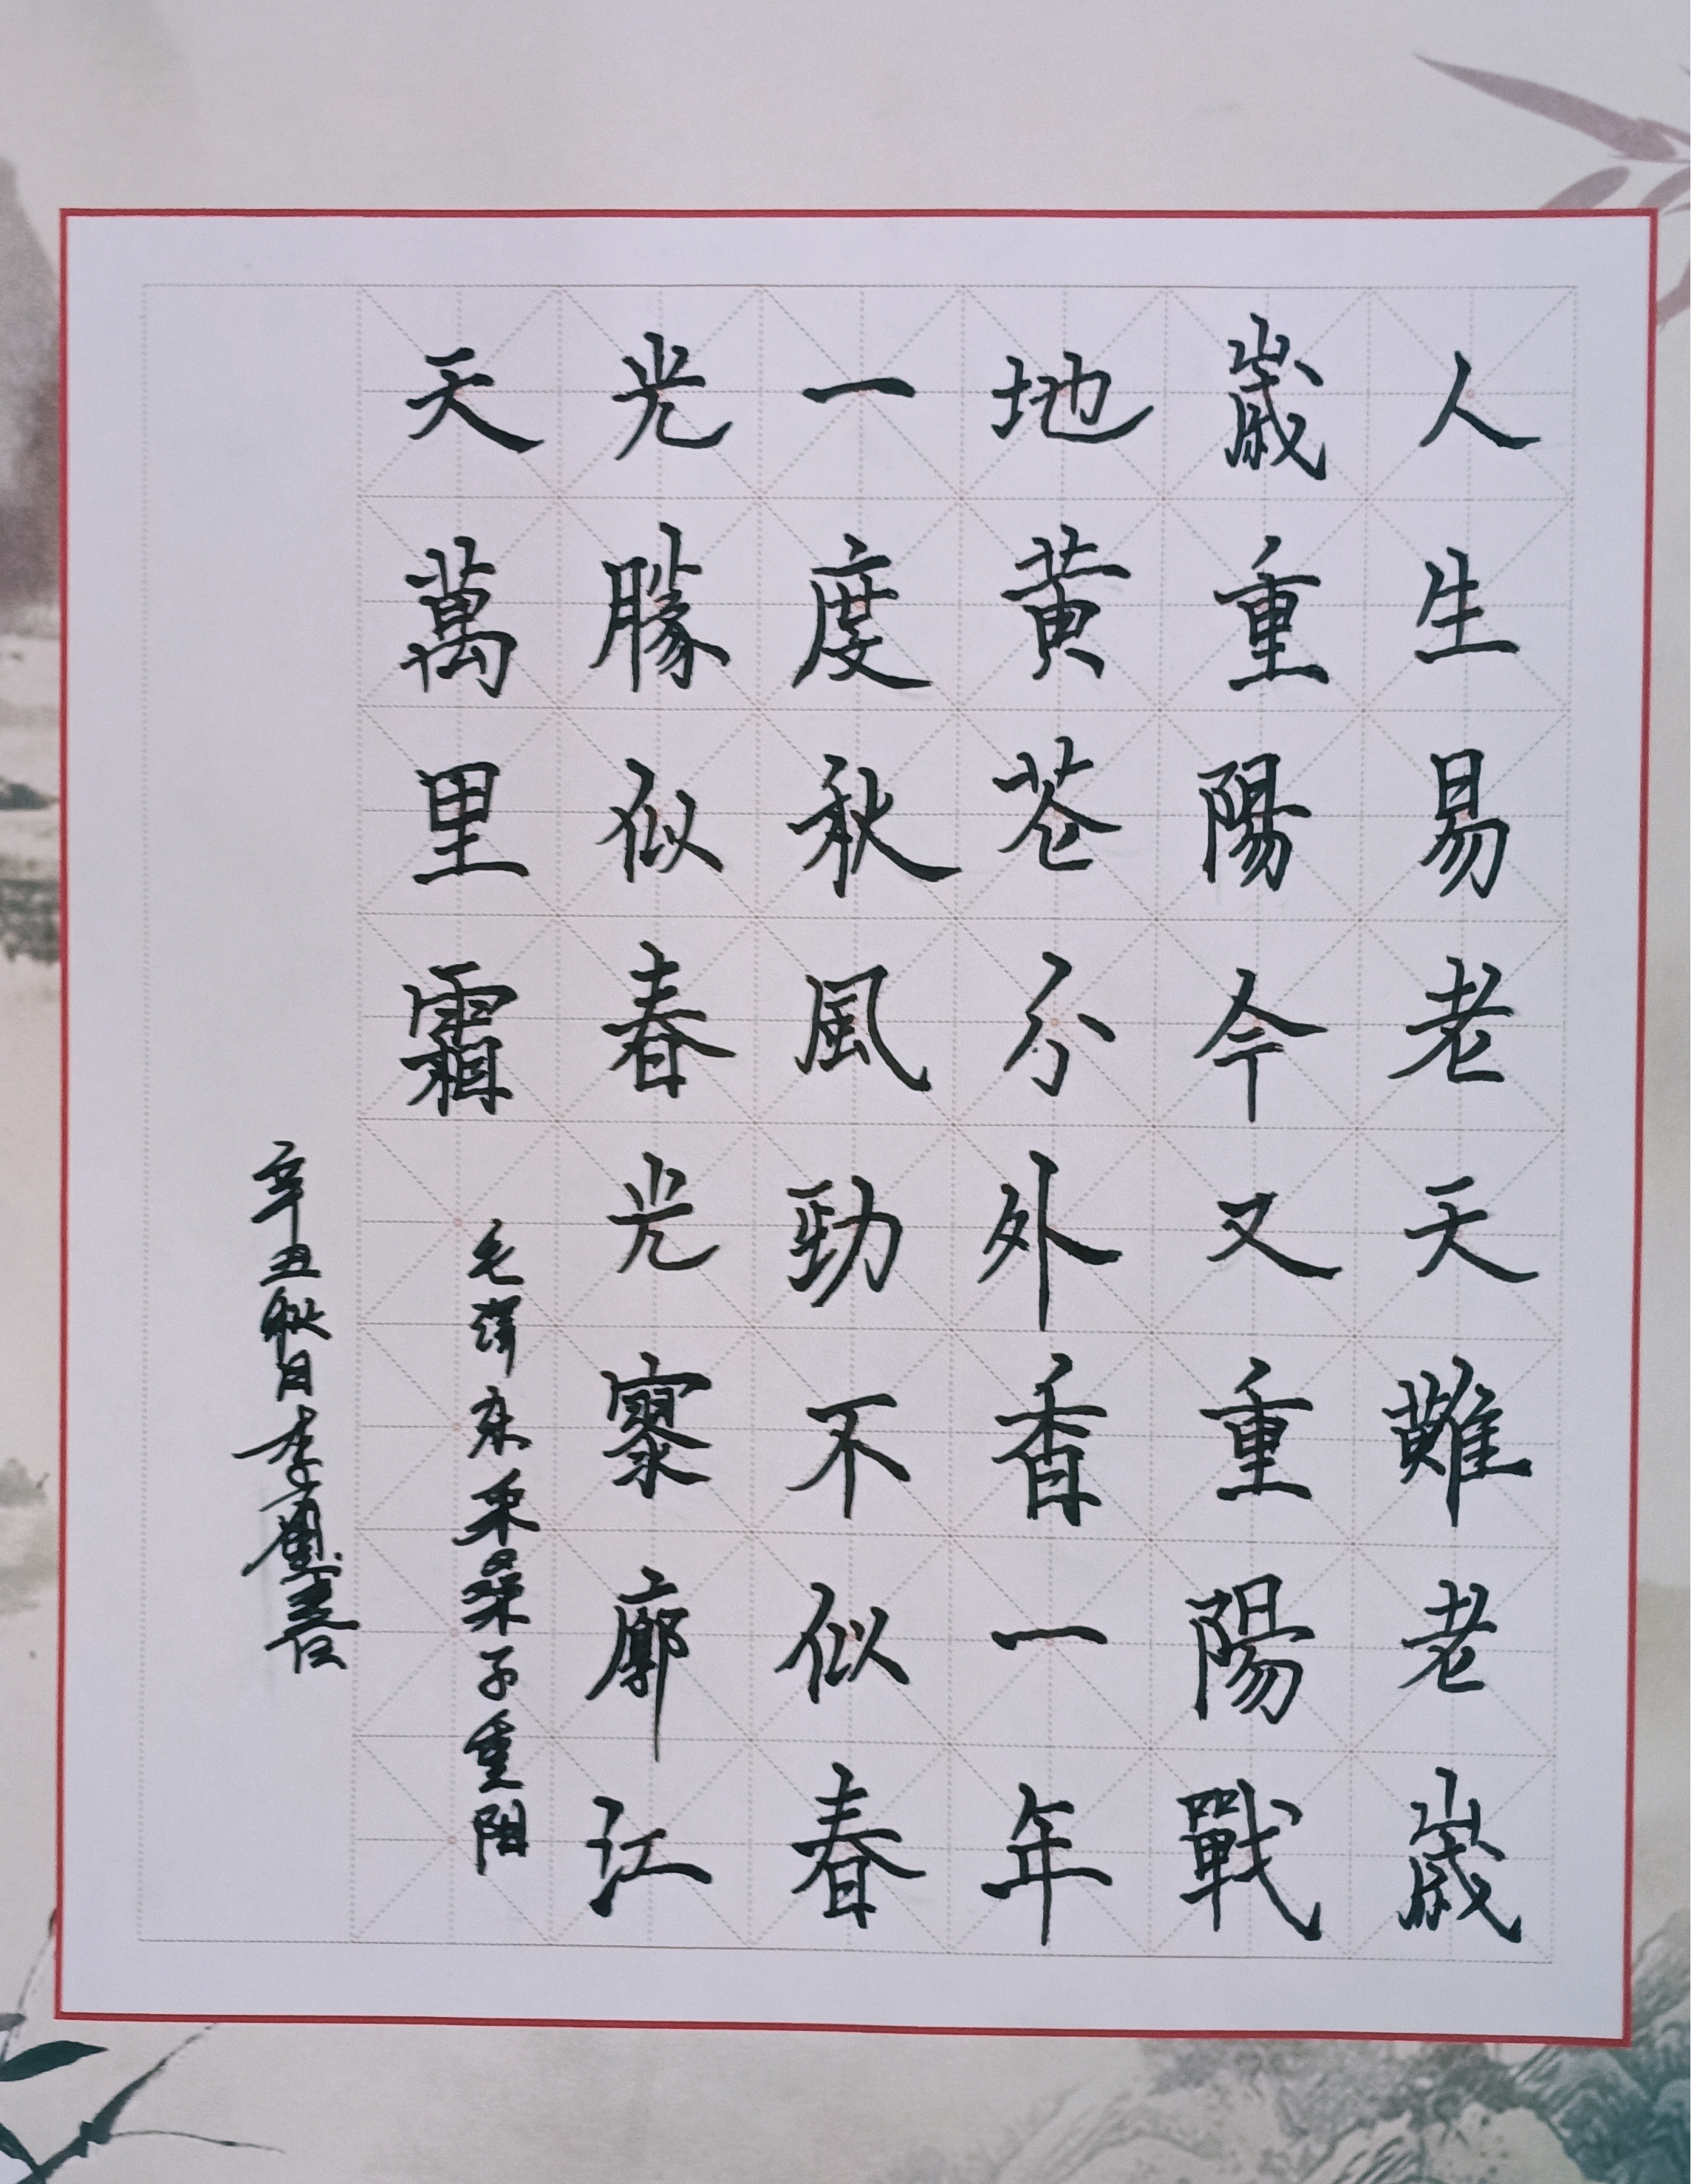 人生易老天難老歲
歲重陽今又重陽戰
地黃花分外香一年
一度秋風勁不似春
光勝似春光寥廓江
天萬里霜
毛澤東采桑子重陽
辛丑秋月李